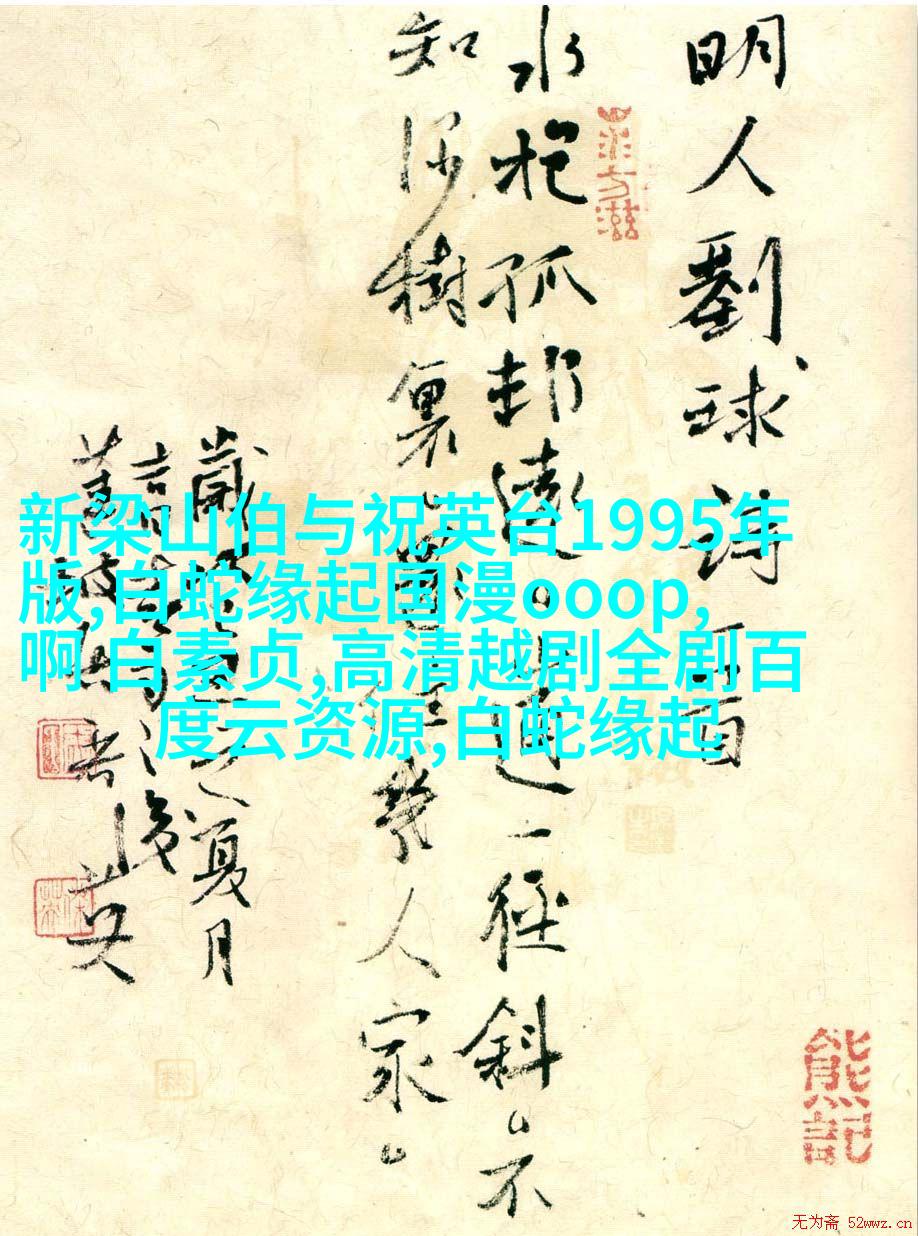 明人劉球詩一首
水抱孤邨遠山通一徑斜不
知深樹裏還住幾人家
之夏月
新梁山伯与祝英台1995年
版,白蛇缘起国漫ooop,
啊 白素贞,高清越剧全剧百
度云资源,白蛇缘起
熊記
无为斋 52wwz.cn